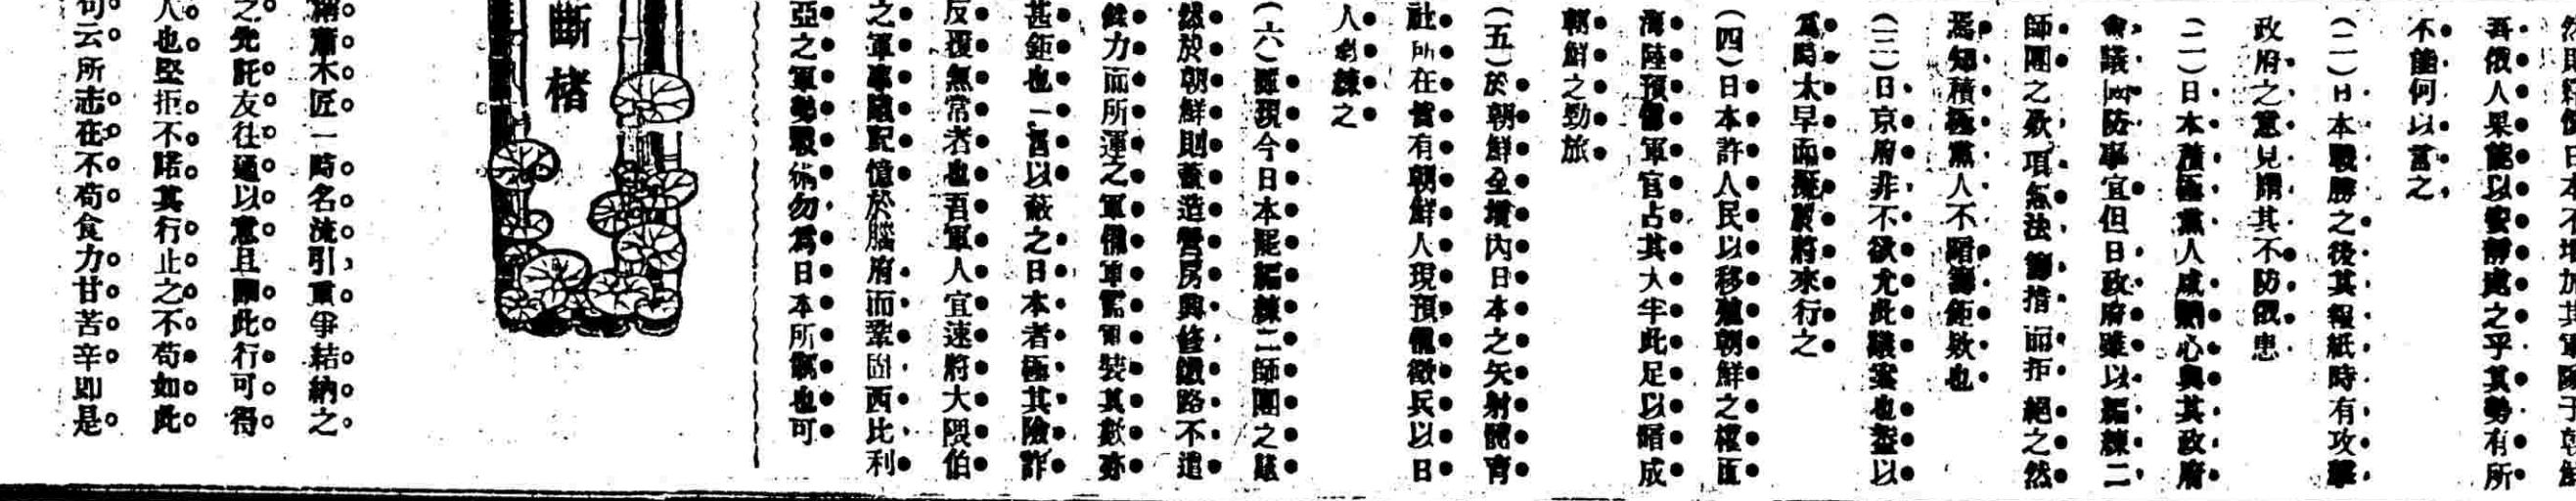 吾俄人果能以安靜處之乎其勢有所
不能何以言之
(一)日本戰勝之後其報紙時有攻擊
政府之意見謂其不防俄患
(二)日本積極黨人咸關心與其政府
會議國防事宜但日政府雖以編練二
師團之款項無法籌措而拒絕之然
焉知積極黨人不暗籌鉅欵也
(三)日京府非不欲允此議案也蓋以
為時太早而擬於將來行之
(四)日本許人民以移殖朝鮮之權且
海陸預備軍官占其大半此足以暗成
朝鮮之勁旅
(五)於朝鮮全境內日本之矢射體育
社所在皆有朝鮮人現預備徵兵以日
人訓練之
(六)雖現今日本罷編練二師團之議
然於朝鮮則營造營房興修鐵路不遺
餘力而所運之軍備軍需軍裝其數亦
甚鉅也一言以蔽之日本者極其險詐
反覆無常者也吾軍人宜速將大隈伯
之軍事議記憶於腦府而鞏固西比利
亞之軍勢戰備勿為日本所竊也可
斷楮
蕭木匠一時名流引重爭結納之
之先託友往通以意且謂此行可得
人也堅拒不諾其行止之不苟如此
句云所志在不苟食力甘苦辛即是